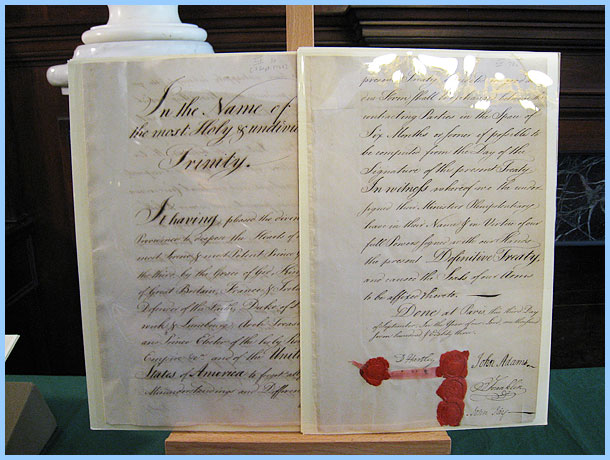 In the Name of
the most Holy & undivi
Trinity.
It having pleased the divin
Providence to dispose the Hearts of
most Serene & most Potent Prince
the third by the Grace of God, King
of Great Britain, France &
Defender of the Faith, Duke of
wick & Lunebourg, Arch
and Prince Elector of the
Empire &ca. and of the United
States of America to forget all
Misunderstandings and Differen
present Treaty
contracting Parties in the Space of
Six Months or sooner if possible to
be computed from the Day of the
Signature of the present Treaty.
In witness whereof we the under
signed their Ministers Plenipotentiary
have in their Name & in Virtue of our
full Powers signed with our Hands
the present Definitive Treaty,
and caused the Seals of our Arms
to be affixed thereto.
Done at Paris, this third Day
of September, In the Year of our Lord one thousand
seven hundred & Eighty three.
D Hartley
John Adams
B Franklin
John Jay